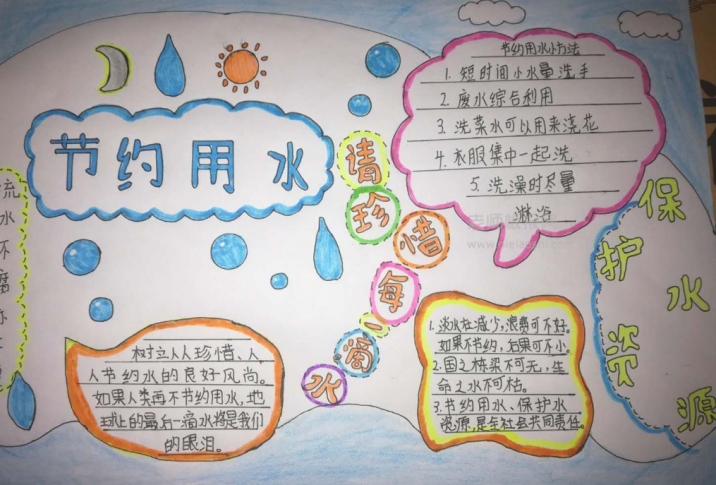 节约用水
请珍惜每一滴水
节约用水小方法
1. 短时间小水量洗手
2. 废水综合利用
3. 洗菜水可以用来浇花
4. 衣服集中一起洗
5. 洗澡时尽量
淋浴
保护水资源
流
水
不
腐
树立人人珍惜、人
人节约水的良好风尚。
如果人类再不节约用水,地
球上的最后一滴水将是我们
的眼泪。
1. 淡水在减少,浪费可不好。
如果不节约,后果可不小。
2. 国之栋梁不可无,生
命之水不可枯。
3. 节约用水、保护水
资源,是全社会共同责任。